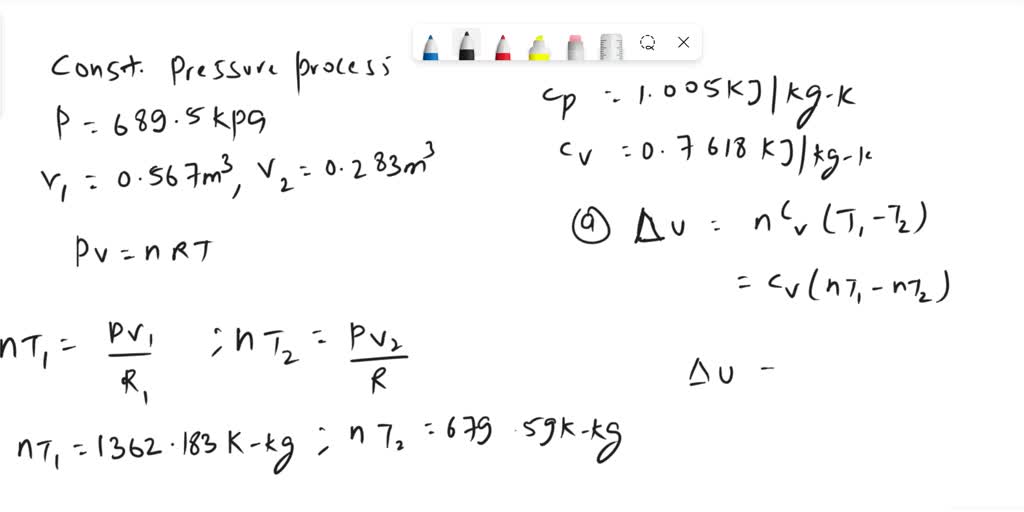 Const. Pressure process
P = 689.5 kpa
V₁ = 0.567m³, V₂ = 0.283m³
PV = nRT
nT₁ = PV₁/R₁ ; nT₂ = PV₂/R
nT₁ = 1362.183 K-kg ; nT₂ = 679.59K-kg
Cp = 1.005KJ/kg-k
Cv = 0.7618 KJ/kg-k
ⓐ ΔU = nCv (T₁-T₂)
= Cv (nT₁ - nT₂)
ΔU -